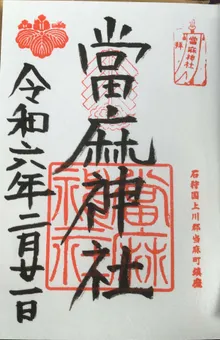 當麻神社
石狩国上川郡当麻町鎮座
當麻神社
當麻
神社
令和六年二月廿一日